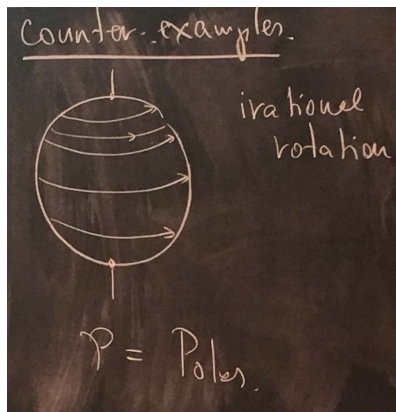 Counter-examples.
irational
rotation
P = Poles.